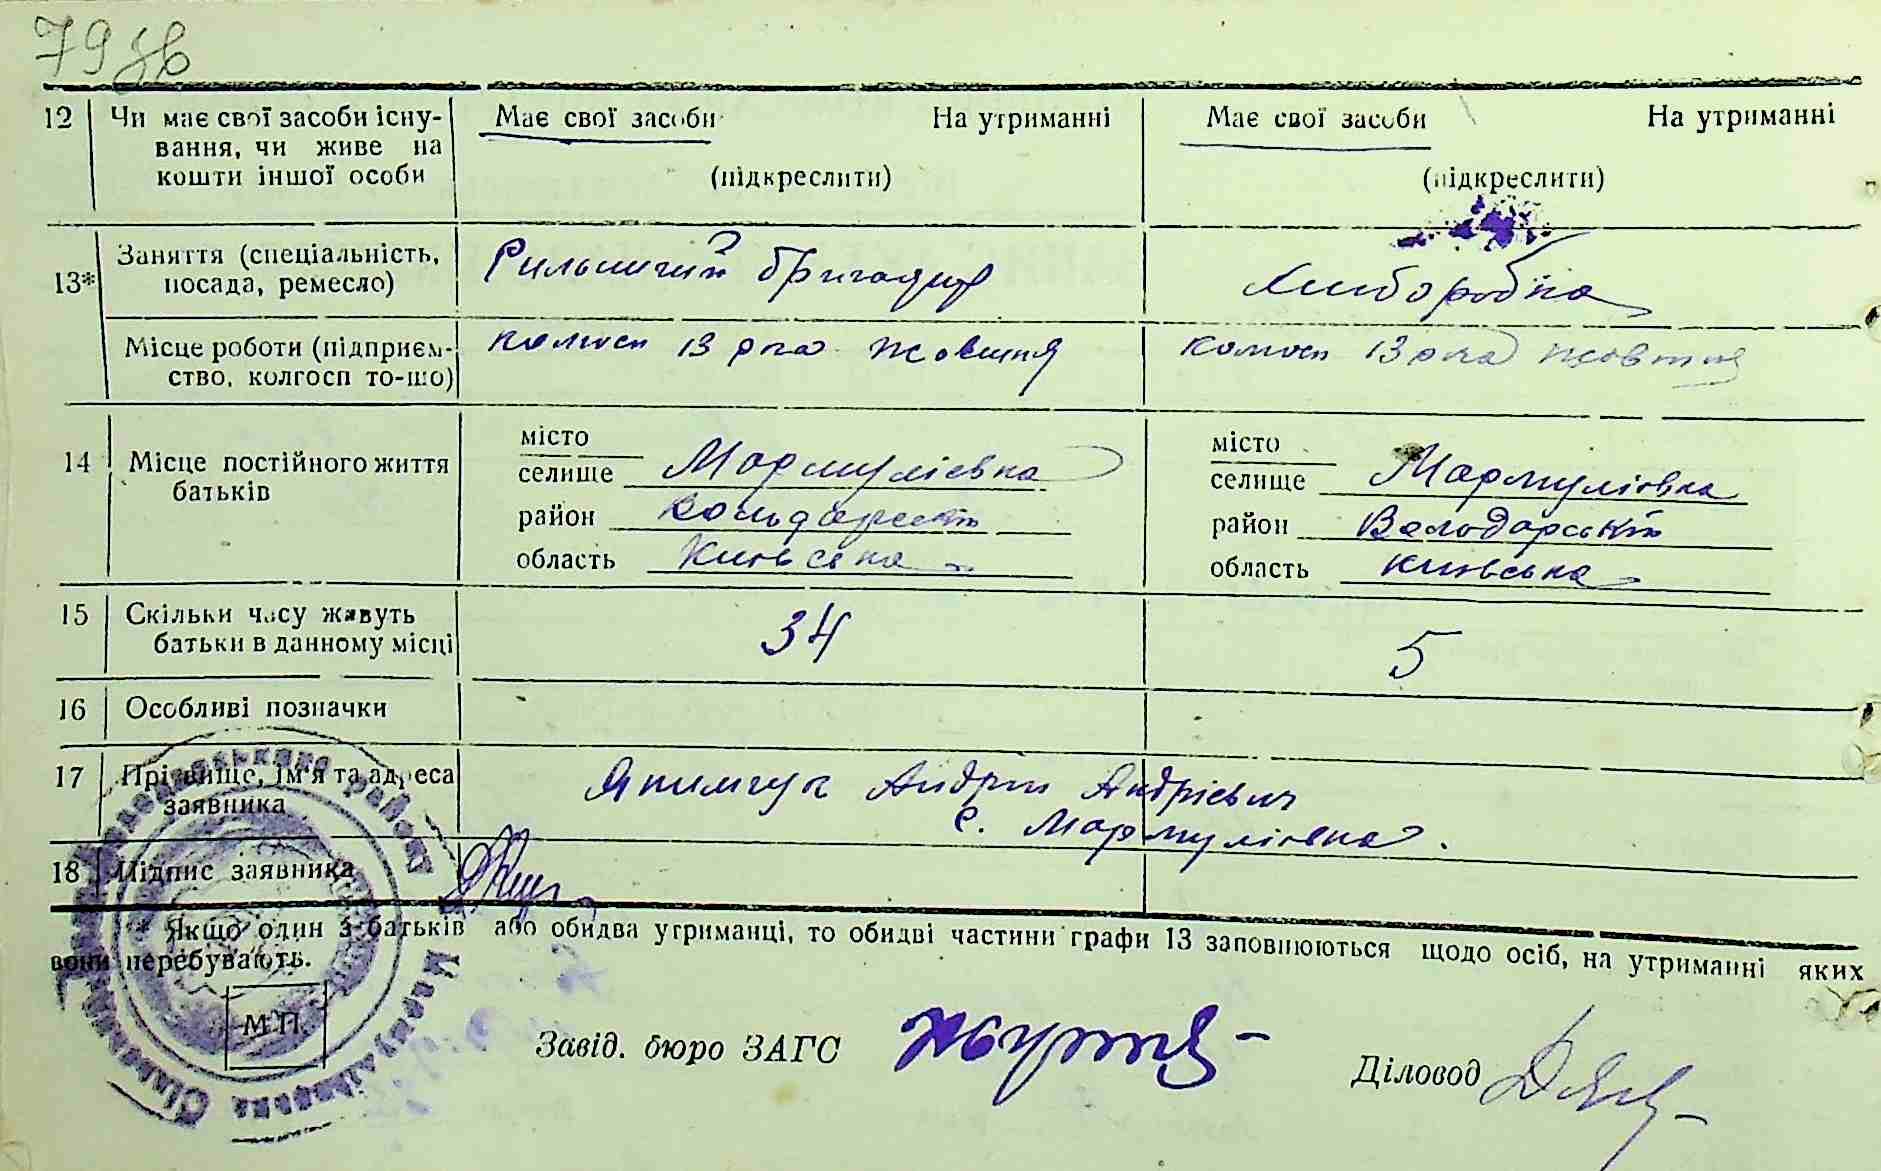 79 зв
12 Чи має свої засоби існу- Має свої засоби На утриманні Має свої засоби На утриманні
вання, чи живе на
кошти іншої особи (підкреслити) (підкреслити)
13* Заняття (спеціальність, Рильничий бригадир Хліборобка
посада, ремесло)
Місце роботи (підприєм- колгосп 13 рча Жовтня колгосп 13 рча Жовтня
ство, колгосп то-що)
14 Місце постійного життя місто місто
батьків селище Мармуліевка селище Мармуліовка
район Володарський район Володарський
область Київська область Київська
15 Скільки часу живуть 34 5
батьки в данному місці
16 Особливі позначки
17 Прізвище, ім'я та адреса Якимчук Андрій Андрієвич
заявника с. Мармуліовка.
18 Підпис заявника
* Якщо один з батьків або обидва утриманці, то обидві частини графи 13 заповнюються щодо осіб, на утриманні яких
вони перебувають.
М.П.
Завід. бюро ЗАГС
Діловод